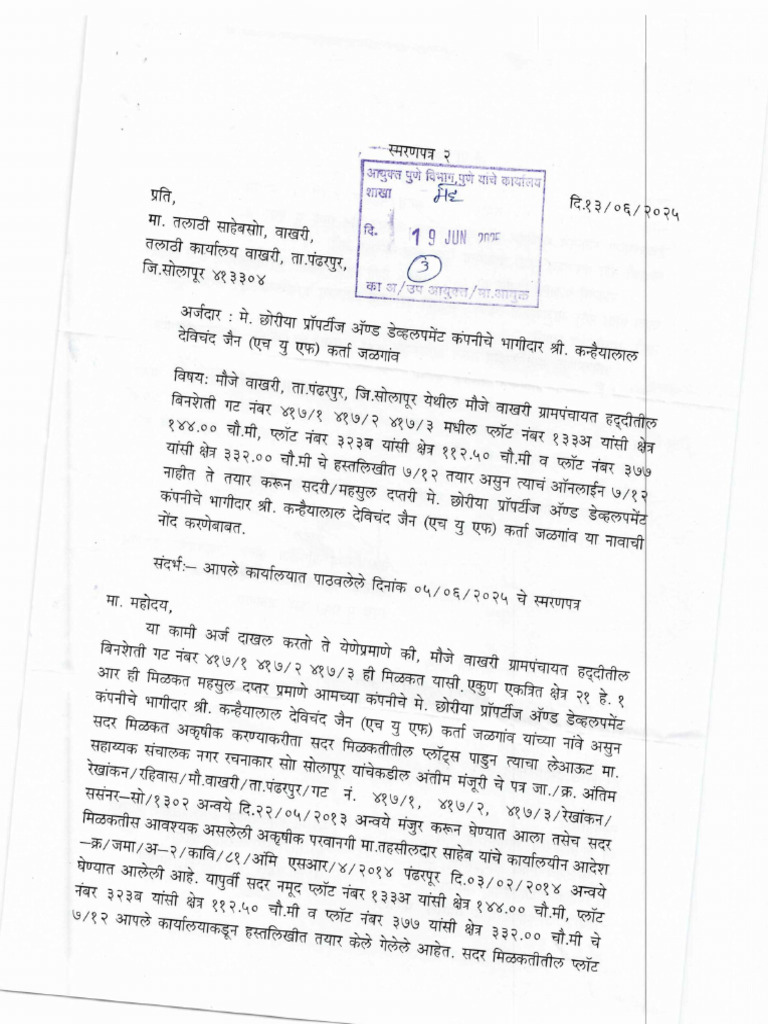 स्मरणपत्र २
आयुक्त पुणे विभाग, पुणे यांचे कार्यालय
शाखा
दि. 19 JUN
3
का अ/उप आयुक्त/मा.आयुक्त
दि.१३/०६/२०२५
प्रति,
मा. तलाठी साहेबसो, वाखरी,
तलाठी कार्यालय वाखरी, ता.पंढरपुर,
जि.सोलापूर ४१३३०४
अर्जदार : मे. छोरीया प्रॉपर्टीज ॲण्ड डेव्हलपमेंट कंपनीचे भागीदार श्री. कन्हैयालाल
देविचंद जैन (एच यु एफ) कर्ता जळगांव
विषय: मौजे वाखरी, ता.पंढरपुर, जि.सोलापूर येथील मौजे वाखरी ग्रामपंचायत हद्दीतील
बिनशेती गट नंबर ४१७/१ ४१७/२ ४१७/३ मधील प्लॉट नंबर १३३अ यांसी क्षेत्र
१४४.०० चौ.मी, प्लॉट नंबर ३२३ब यांसी क्षेत्र ११२.५० चौ.मी व प्लॉट नंबर ३७७
यांसी क्षेत्र ३३२.०० चौ.मी चे हस्तलिखीत ७/१२ तयार असुन त्याचं ऑनलाईन ७/१२
नाहीत ते तयार करून सदरी/महसुल दप्तरी मे. छोरीया प्रॉपर्टीज ॲण्ड डेव्हलपमेंट
कंपनीचे भागीदार श्री. कन्हैयालाल देविचंद जैन (एच यु एफ) कर्ता जळगांव या नावाची
नोंद करणेबाबत.
संदर्भ:– आपले कार्यालयात पाठवलेले दिनांक ०५/०६/२०२५ चे स्मरणपत्र
मा. महोदय,
या कामी अर्ज दाखल करतो ते येणेप्रमाणे की, मौजे वाखरी ग्रामपंचायत हद्दीतील
बिनशेती गट नंबर ४१७/१ ४१७/२ ४१७/३ ही मिळकत यासी. एकुण एकत्रित क्षेत्र २१ हे. १
आर ही मिळकत महसुल दप्तर प्रमाणे आमच्या कंपनीचे मे. छोरीया प्रॉपर्टीज ॲण्ड डेव्हलपमेंट
कंपनीचे भागीदार श्री. कन्हैयालाल देविचंद जैन (एच यु एफ) कर्ता जळगांव यांच्या नांवे असुन
सदर मिळकत अकृषीक करण्याकरीता सदर मिळकतीतील प्लॉट्स पाडुन त्याचा लेआऊट मा.
सहाय्यक संचालक नगर रचनाकार सो सोलापूर यांचेकडील अंतीम मंजूरी चे पत्र जा./क्र. अंतिम
रेखांकन/रहिवास/मौ.वाखरी/ता.पंढरपुर/गट नं. ४१७/१, ४१७/२, ४१७/३/रेखांकन/
ससंनर–सो/१३०२ अन्वये दि.२२/०५/२०१३ अन्वये मंजुर करून घेण्यात आला तसेच सदर
मिळकतीस आवश्यक असलेली अकृषीक परवानगी मा.तहसीलदार साहेब यांचे कार्यालयीन आदेश
–क्र/जमा/अ–२/कावि/८१/अंमि एसआर/४/२०१४ पंढरपूर दि.०३/०२/२०१४ अन्वये
घेण्यात आलेली आहे. यापुर्वी सदर नमूद प्लॉट नंबर १३३अ यांसी क्षेत्र १४४.०० चौ.मी, प्लॉट
नंबर ३२३ब यांसी क्षेत्र ११२.५० चौ.मी व प्लॉट नंबर ३७७ यांसी क्षेत्र ३३२.०० चौ.मी चे
७/१२ आपले कार्यालयाकडून हस्तलिखीत तयार केले गेलेले आहेत. सदर मिळकतीतील प्लॉट